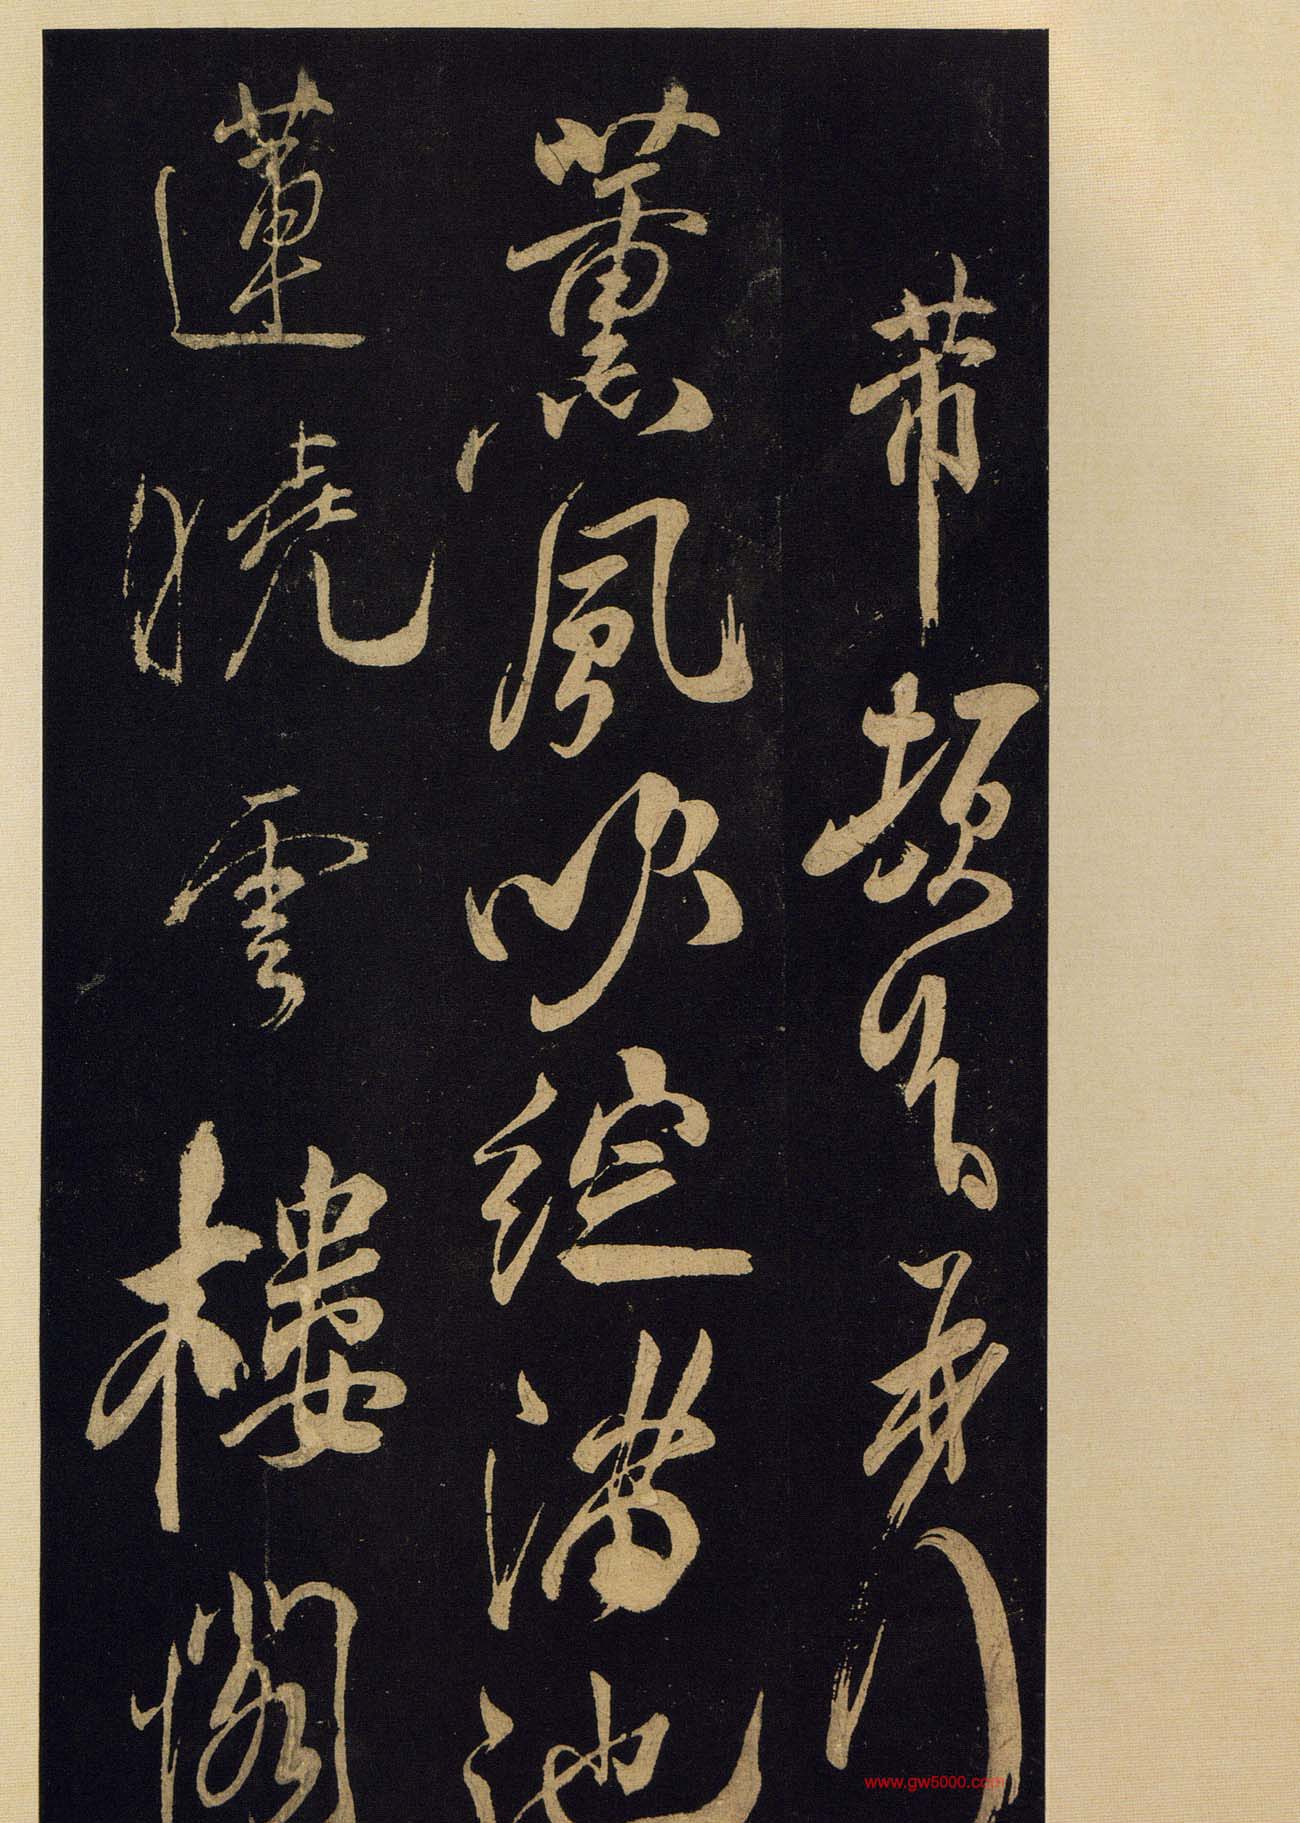 帶
薰風吹綻滿池
蓮曉雲樓閣
www.gw5000.com